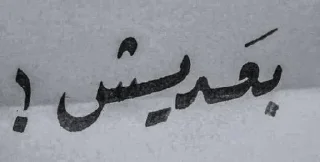 بعَديش !